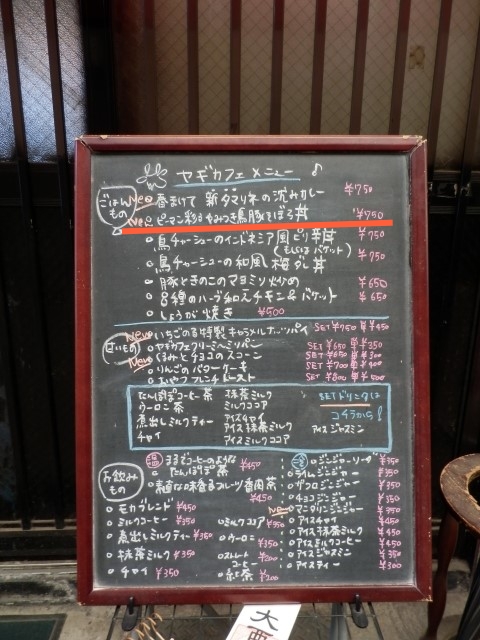 ヤギカフェメニュー ♪
ごはんもの
New 春まけて 新タマネギの沈みカレー ¥750
New ピーマン彩り 鳥豚そぼろ丼 ¥750
鳥チャーシューのインドネシア風ピリ辛丼 ¥750
(もしくは バケット)
鳥チャーシューの和風梅ダレ丼 ¥750
豚ときのこのマヨミソ炒め ¥650
8種のハーブ和えチキン&バケット ¥650
しょうが焼き ¥500
甘いもの
New いちごの 特製キャラメルナッツパイ SET¥750 単¥450
ヤギカフェクリーミーミツパン SET¥650 単¥350
New くるみとチョコのスコーン SET¥650 単¥300
りんごのパウンドケーキ SET¥700 単¥400
おやつフレンチトースト SET¥800 単¥500
たんぽぽコーヒー茶 抹茶ミルク SETドリンクは
ウーロン茶 ミルクココア コチラから!
煮出しミルクティー アイスチャイ
チャイ アイス抹茶ミルク アイスジャスミン
アイスミルクココア
お飲みもの
温 まるでコーヒーのような
たんぽぽ茶 ¥450
素敵な味香るフルーツ番肉茶 ¥450
モカブレンド ¥450
ミルクコーヒー ¥350
煮出しミルクティー ¥350
抹茶ミルク ¥350
チャイ ¥350
ミルクココア ¥350
ウーロン ¥350
ストレートコーヒー ¥300
紅茶 ¥200
冷 ジンジャーソーダ ¥350
ライムジンジャー ¥350
ザクロジンジャー ¥350
チョコジンジャー ¥350
New マンダリンジンジャー ¥350
アイスチャイ ¥450
アイス抹茶ミルク ¥450
アイスミルクコーヒー ¥450
アイスジャスミン ¥350
アイスティー ¥300
大西